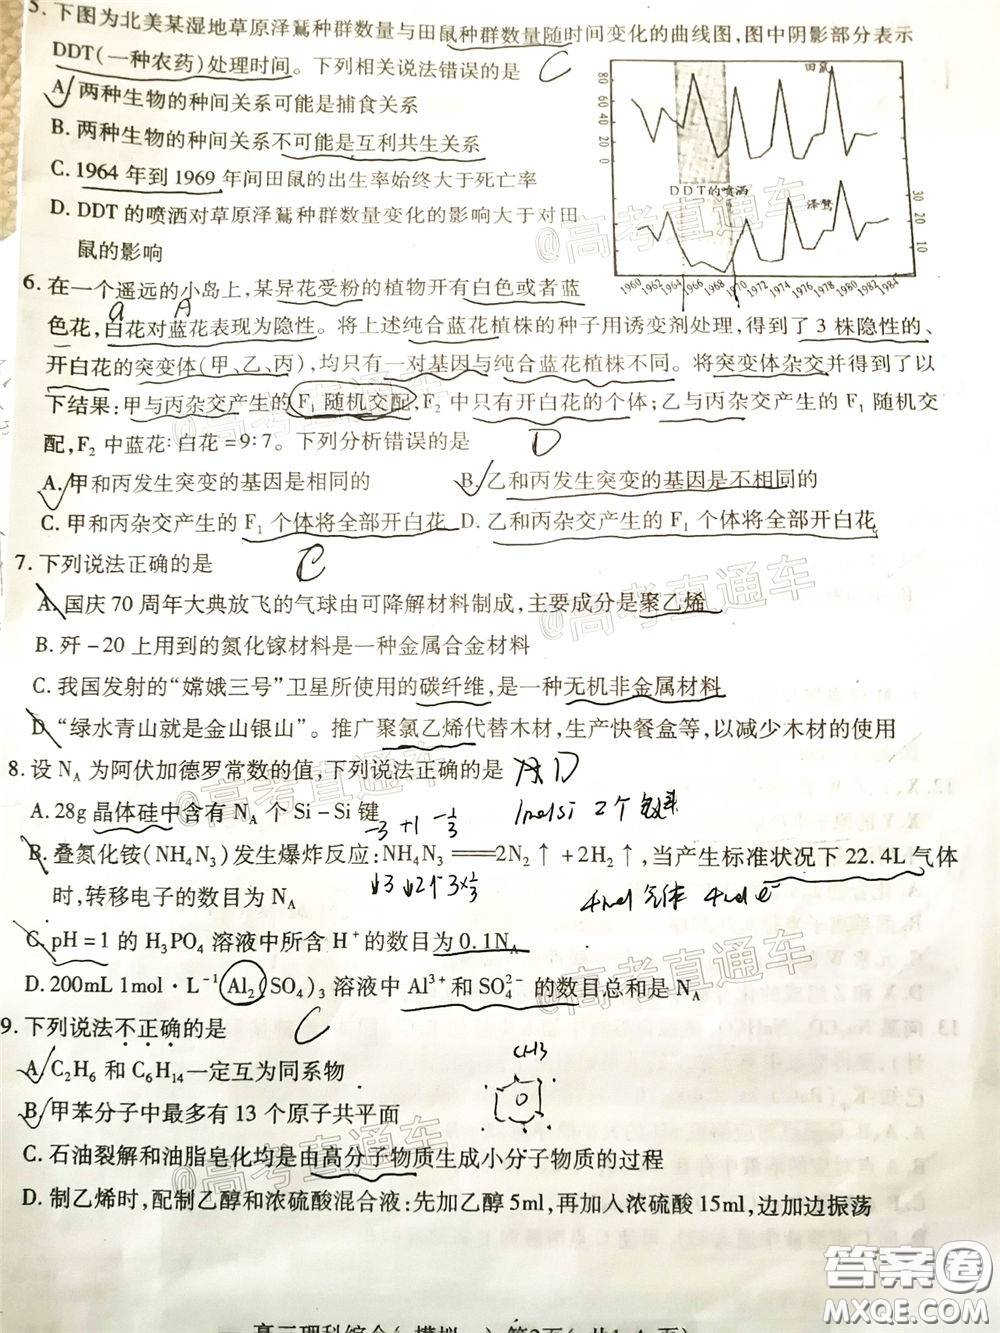 5. 下图为北美某湿地草原泽鵟种群数量与田鼠种群数量随时间变化的曲线图,图中阴影部分表示
DDT(一种农药)处理时间。下列相关说法错误的是 C
A. 两种生物的种间关系可能是捕食关系
B. 两种生物的种间关系不可能是互利共生关系
C. 1964 年到 1969 年间田鼠的出生率始终大于死亡率
D. DDT 的喷洒对草原泽鵟种群数量变化的影响大于对田
鼠的影响
田鼠
80
60
40
20
0
DDT的喷洒
泽鵟
30
20
10
1960 1962 1964 1966 1968 1970 1972 1974 1976 1978 1980 1982 1984
6. 在一个遥远的小岛上,某异花受粉的植物开有白色或者蓝
a A
色花,白花对蓝花表现为隐性。将上述纯合蓝花植株的种子用诱变剂处理,得到了 3 株隐性的、
开白花的突变体(甲、乙、丙),均只有一对基因与纯合蓝花植株不同。将突变体杂交并得到了以
下结果:甲与丙杂交产生的 F1 随机交配,F2 中只有开白花的个体;乙与丙杂交产生的 F1 随机交
配,F2 中蓝花∶白花=9∶7。下列分析错误的是 D
A. 甲和丙发生突变的基因是相同的 B. 乙和丙发生突变的基因是不相同的
C. 甲和丙杂交产生的 F1 个体将全部开白花 D. 乙和丙杂交产生的 F1 个体将全部开白花
7. 下列说法正确的是 C
A. 国庆 70 周年大典放飞的气球由可降解材料制成,主要成分是聚乙烯
B. 歼-20 上用到的氮化镓材料是一种金属合金材料
C. 我国发射的“嫦娥三号”卫星所使用的碳纤维,是一种无机非金属材料
D. “绿水青山就是金山银山”。推广聚氯乙烯代替木材,生产快餐盒等,以减少木材的使用
8. 设 NA 为阿伏加德罗常数的值,下列说法正确的是 D
A. 28g 晶体硅中含有 NA 个 Si-Si 键 1molSi 2个
-3 +1 -1/3
B. 叠氮化铵(NH4N3)发生爆炸反应:NH4N3═══2N2↑+2H2↑,当产生标准状况下 22.4L 气体
时,转移电子的数目为 NA 4mol 气体 4mol e-
C. pH=1 的 H3PO4 溶液中所含 H+的数目为 0.1NA
D. 200mL 1mol·L-1 Al2(SO4)3 溶液中 Al3+和 SO42- 的数目总和是 NA
9. 下列说法不正确的是 C
CH3
A. C2H6 和 C6H14一定互为同系物
B. 甲苯分子中最多有 13 个原子共平面
C. 石油裂解和油脂皂化均是由高分子物质生成小分子物质的过程
D. 制乙烯时,配制乙醇和浓硫酸混合液:先加乙醇 5ml,再加入浓硫酸 15ml,边加边振荡
@高考直通车
@高考直通车
@高考直通车
@高考直通车
@高考直通车
@高考直通车
@高考直通车
答案圈
MXQE.COM